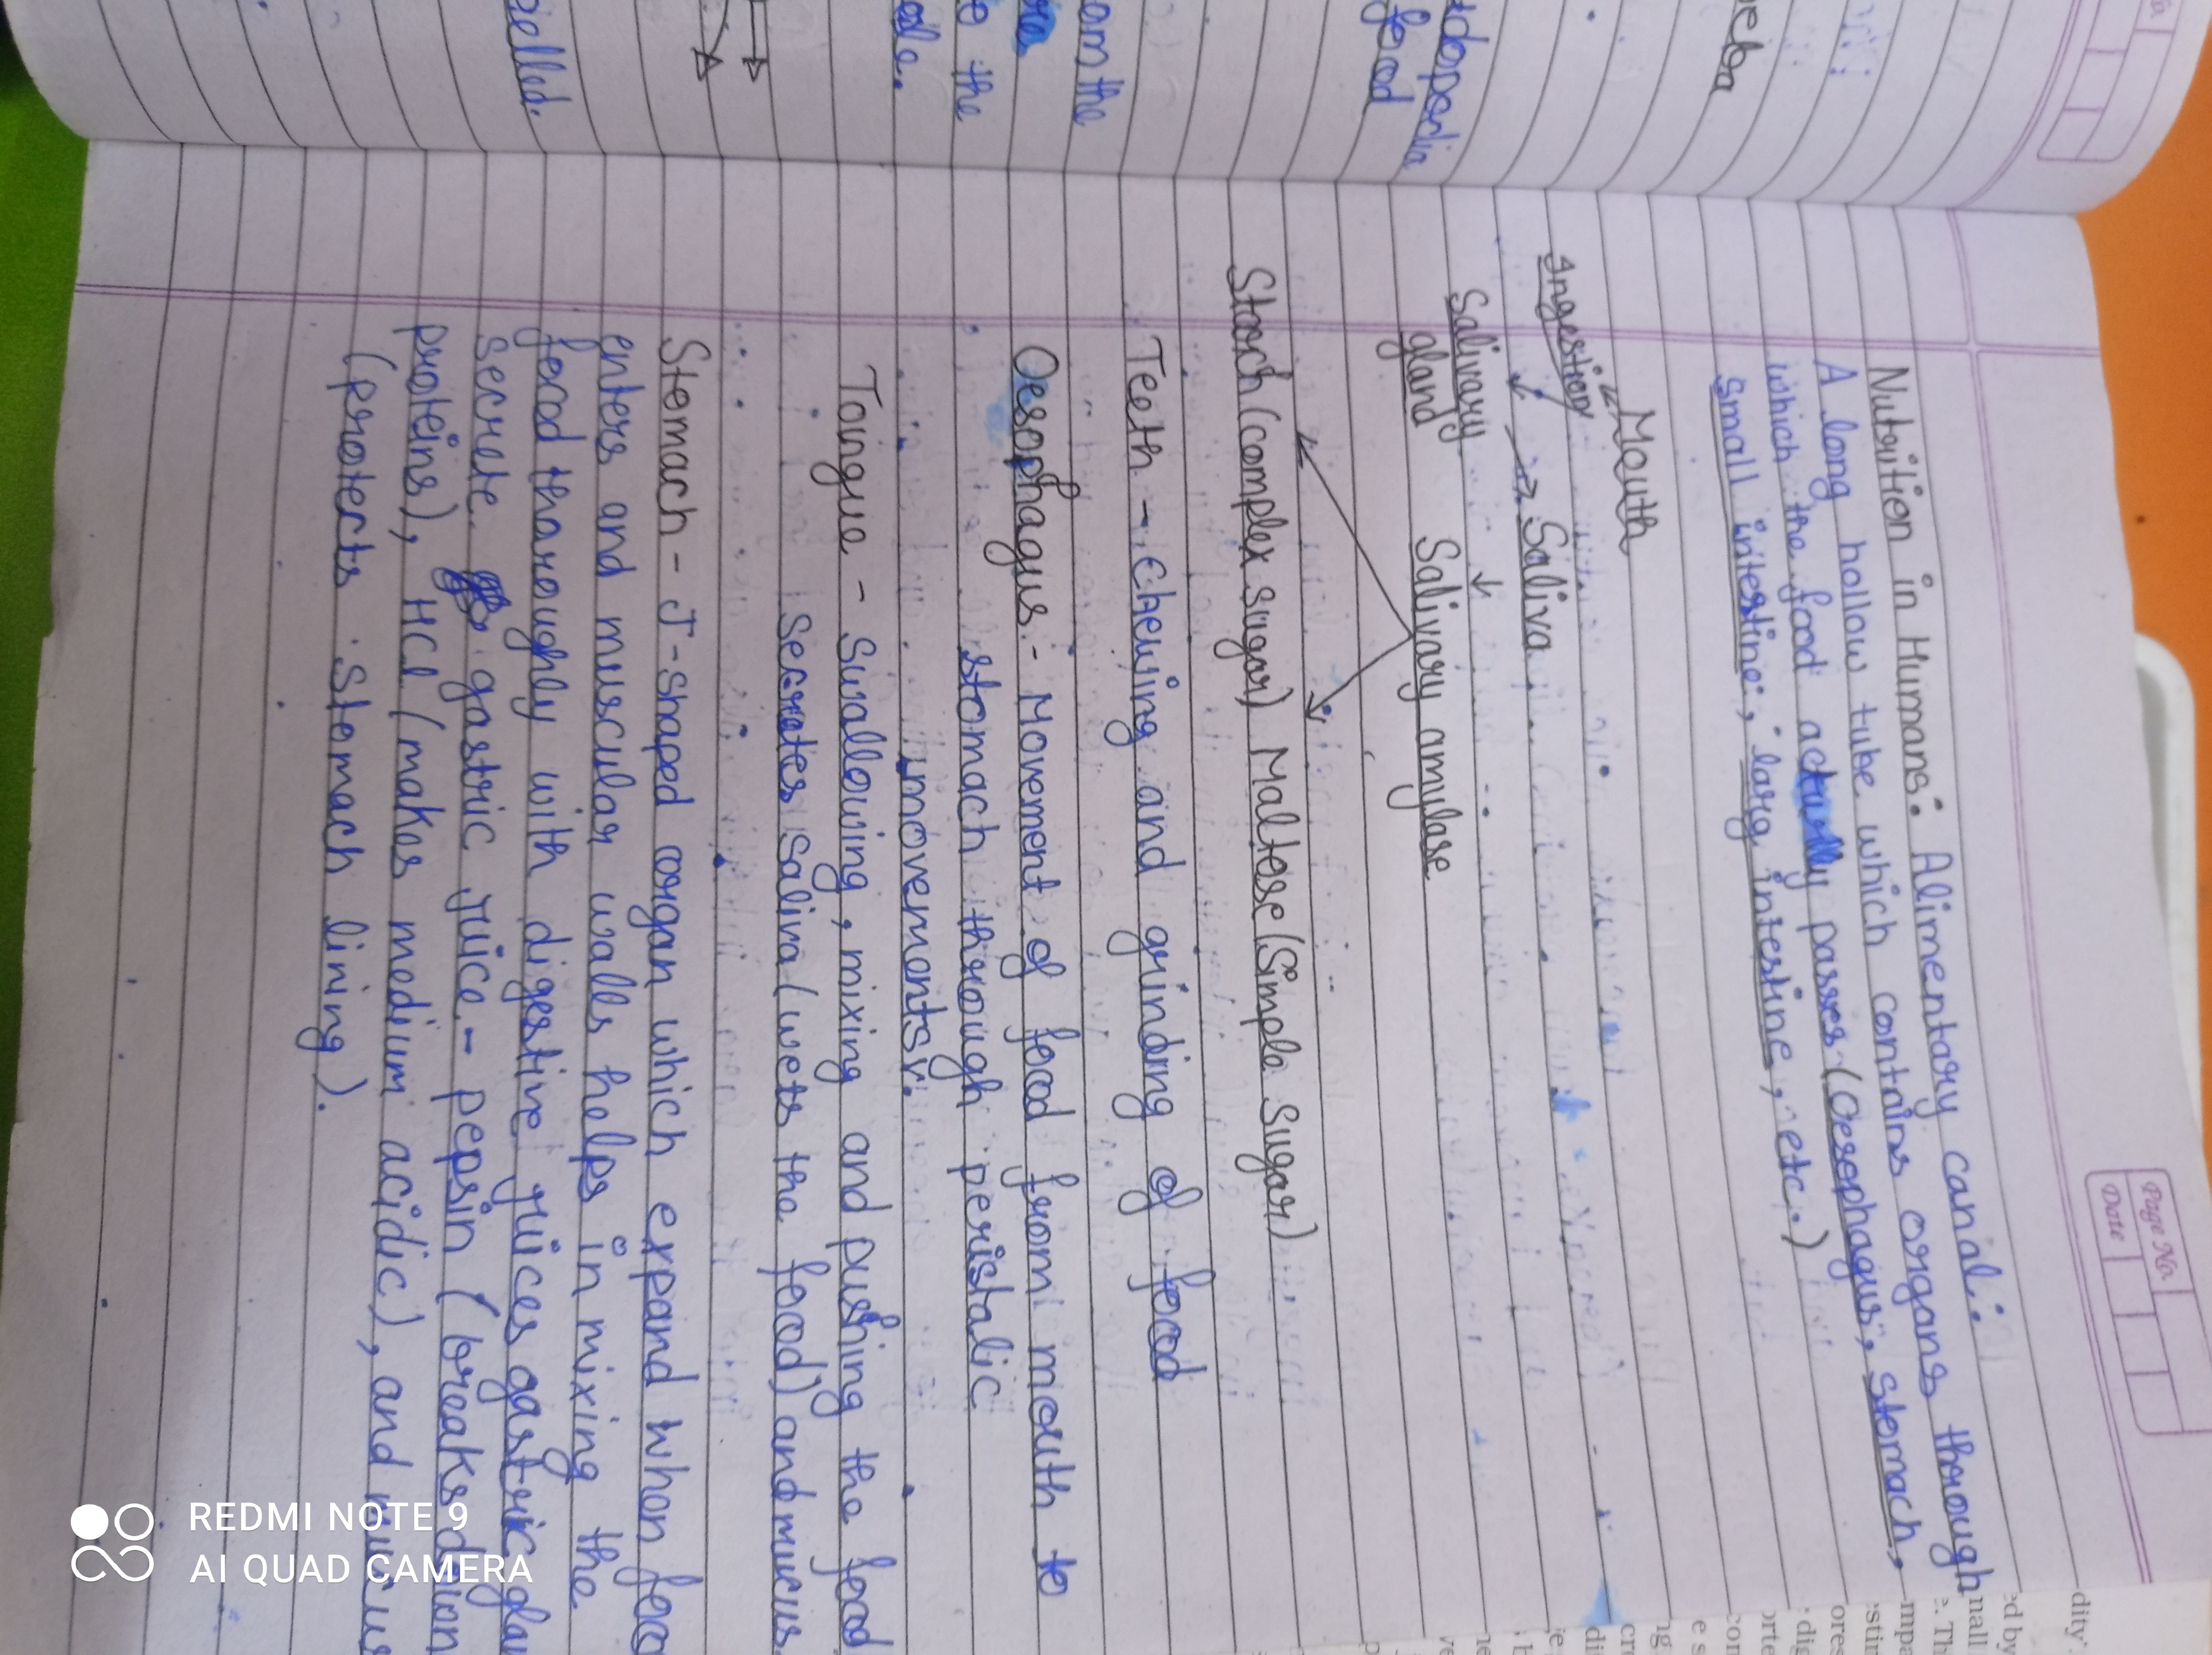 Page No.
Date
Nutrition in Humans: Alimentary canal:
A long hollow tube which contains organs through
which the food actually passes (Oesophagus, Stomach,
small intestine, larg intestine, etc.)
Mouth
Ingestion
Saliva
Salivary
gland
Salivary amylase
Starch (complex sugar) Maltose (Simple Sugar)
Teeth - Chewing and grinding of food
Oesophagus:- Movement of food from mouth to
stomach through peristalic
movements.
Toungue - Swallowing, mixing and pushing the food
Secrates Saliva (wets the food) and mucus.
Stomach - J-shaped organ which expand when foo
enters and muscular walls helps in mixing the
food thoroughly with digestive juices gastric glan
secrete gastric juice - pepsin (breaks down
proteins), HCl (makes medium acidic), and mucus
(protects stomach lining).
eba
dopodia
food
am the
o the
pelled.
REDMI NOTE 9
AI QUAD CAMERA